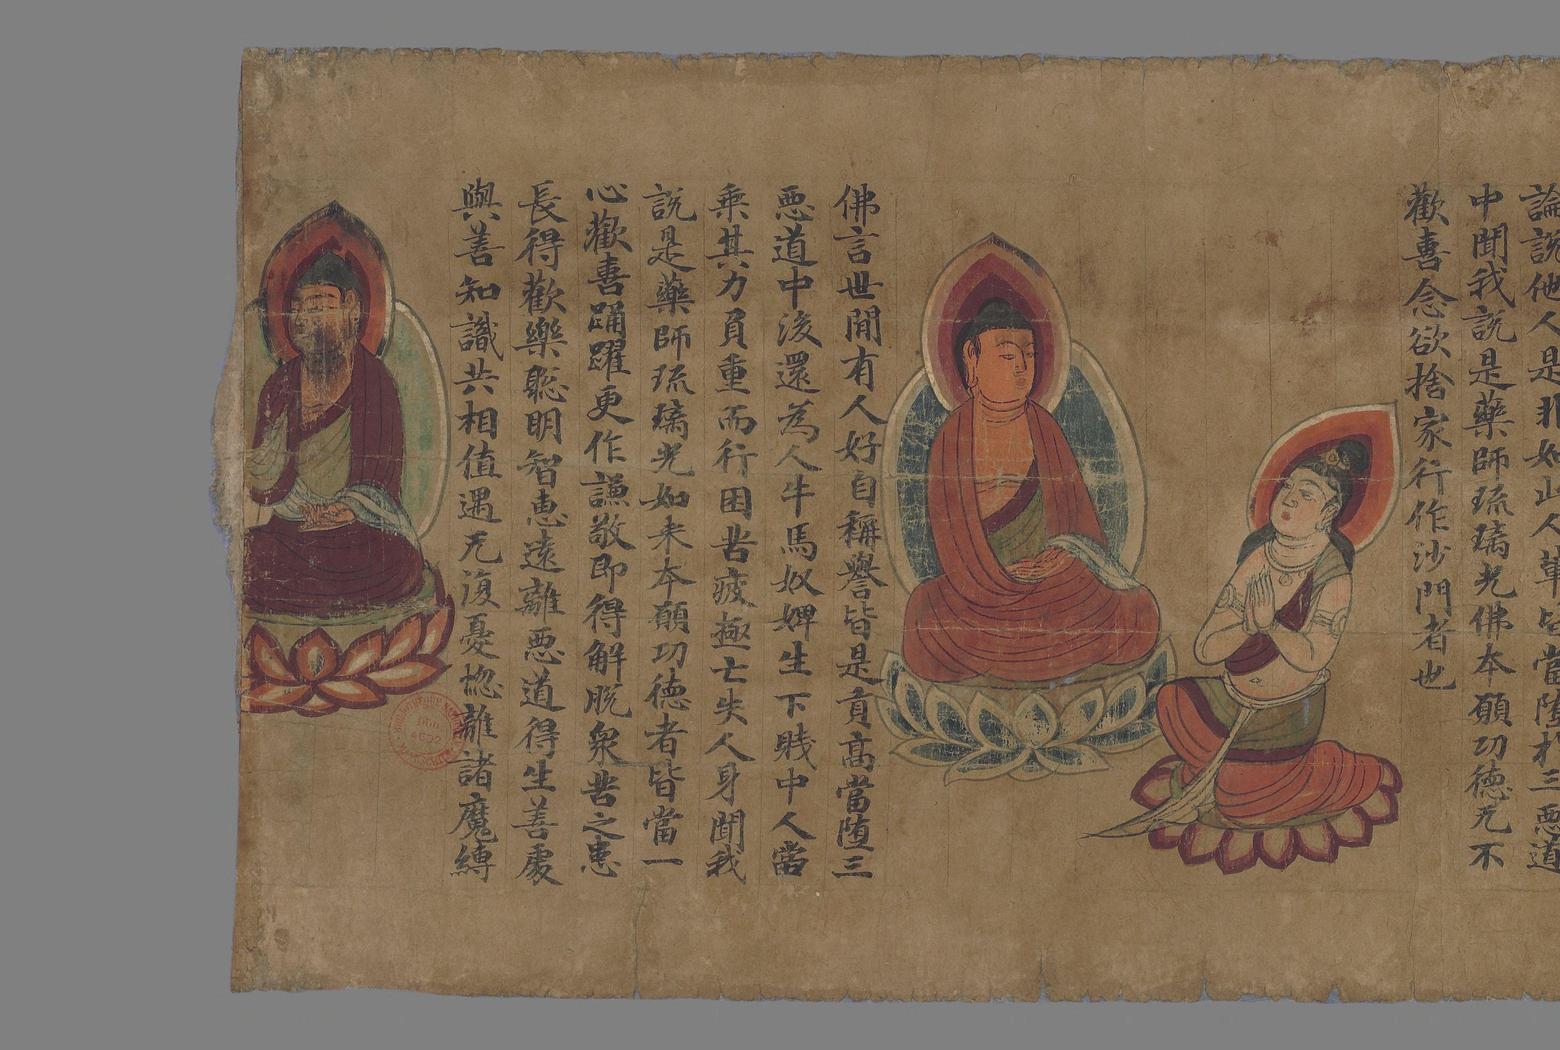 論說他人是非如此人輩皆當墮於三惡道
中聞我說是藥師琉璃光佛本願功德无不
歡喜念欲捨家行作沙門者也
佛言世間有人好自稱譽皆是貢高當墮三
惡道中後還為人牛馬奴婢生下賤中人當
乘其力負重而行困苦疲極亡失人身聞我
說是藥師琉璃光如來本願功德者皆當一
心歡喜踊躍更作謙敬即得解脫眾苦之患
長得歡樂聡明智惠遠離惡道得生善處
與善知識共相值遇无復憂惱離諸魔縛